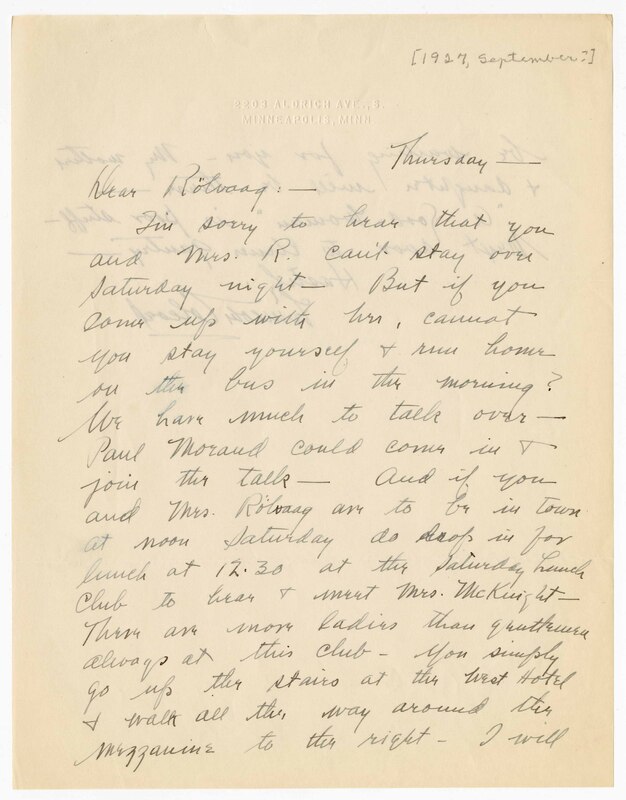 [1927, September?]
2203 ALDRICH AVE., S.
MINNEAPOLIS, MINN.
Thursday —
Dear Rölvaag: —
I'm sorry to hear that you
and Mrs. R. can't stay over
Saturday night — But if you
come up with her, cannot
you stay yourself & run home
on the bus in the morning?
We have much to talk over —
Paul Morand could come in &
join the talk — And if you
and Mrs. Rölvaag are to be in town
at noon Saturday do drop in for
lunch at 12.30 at the Saturday Lunch
Club to hear & meet Mrs. McKnight —
There are more ladies than gentlemen
always at this club — You simply
go up the stairs at the West Hotel
& walk all the way around the
mezzanine to the right — I will